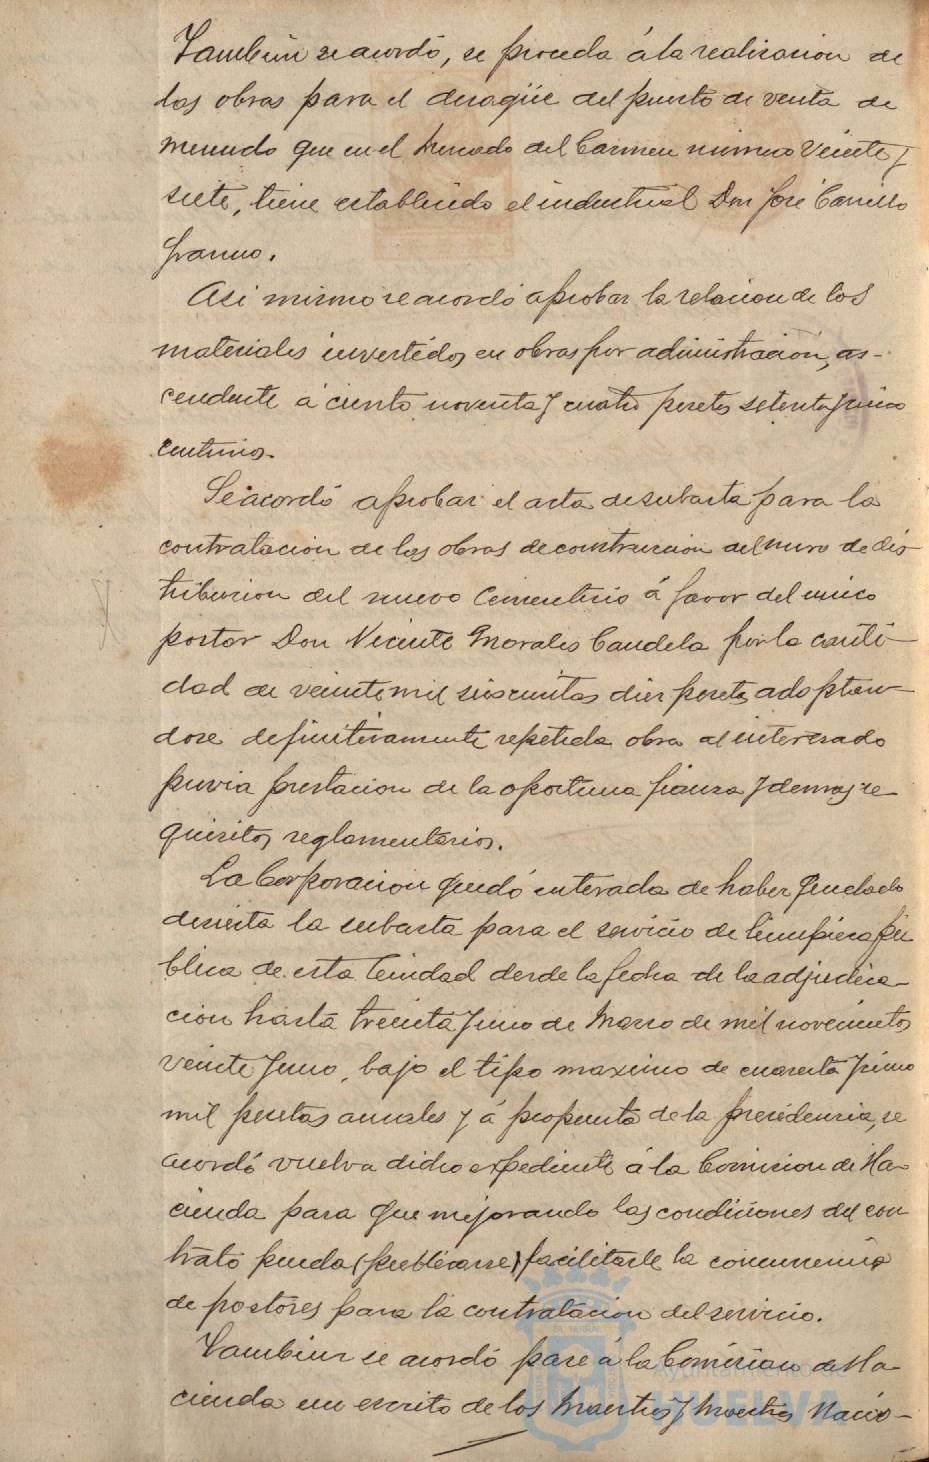 Tambien se acordó, se proceda á la realizacion de
las obras para el desagüe del puesto de venta de
menudo que en el Mercado del Carmen número Veinte y
siete, tiene establecido el industrial Don José Carrillo

Asi mismo se acordó aprobar la relacion de los
materiales invertidos en obras por administración, as-
cendente á ciento noventa y cuatro pesetas setenta y cinco
centimos.
Se acordó aprobar el acta de subasta para la
contratacion de las obras de construccion del muro de dis
tribucion del nuevo Cementerio á favor del unico
postor Don Vicente Morales Candela por la canti-
dad de veinte mil seiscientas diez pesetas adoptan-
dose definitivamente repetida obra al interesado
previa prestacion de la oportuna fianza y demas re-
quisitos reglamentarios.
La Corporacion quedó enterada de haber quedado
desierta la subasta para el servicio de limpieza pú
blica de esta Ciudad desde la fecha de la adjudica-
cion hasta treinta y uno de Marzo de mil novecientos
veinte y uno, bajo el tipo maximo de cuarenta y cinco
mil pesetas anuales y á propuesta de la presidencia, se
acordó vuelva dicho expediente á la Comision de Ha-
cienda para que mejorando las condiciones del con
trato pueda (publicarse) facilitarle la concurrencia
de postores para la contratacion del servicio.
Tambien se acordó pase á la Comision de Ha-
cienda un escrito de los Maestros y Maestras Nacio-
Ayuntamiento de
HUELVA